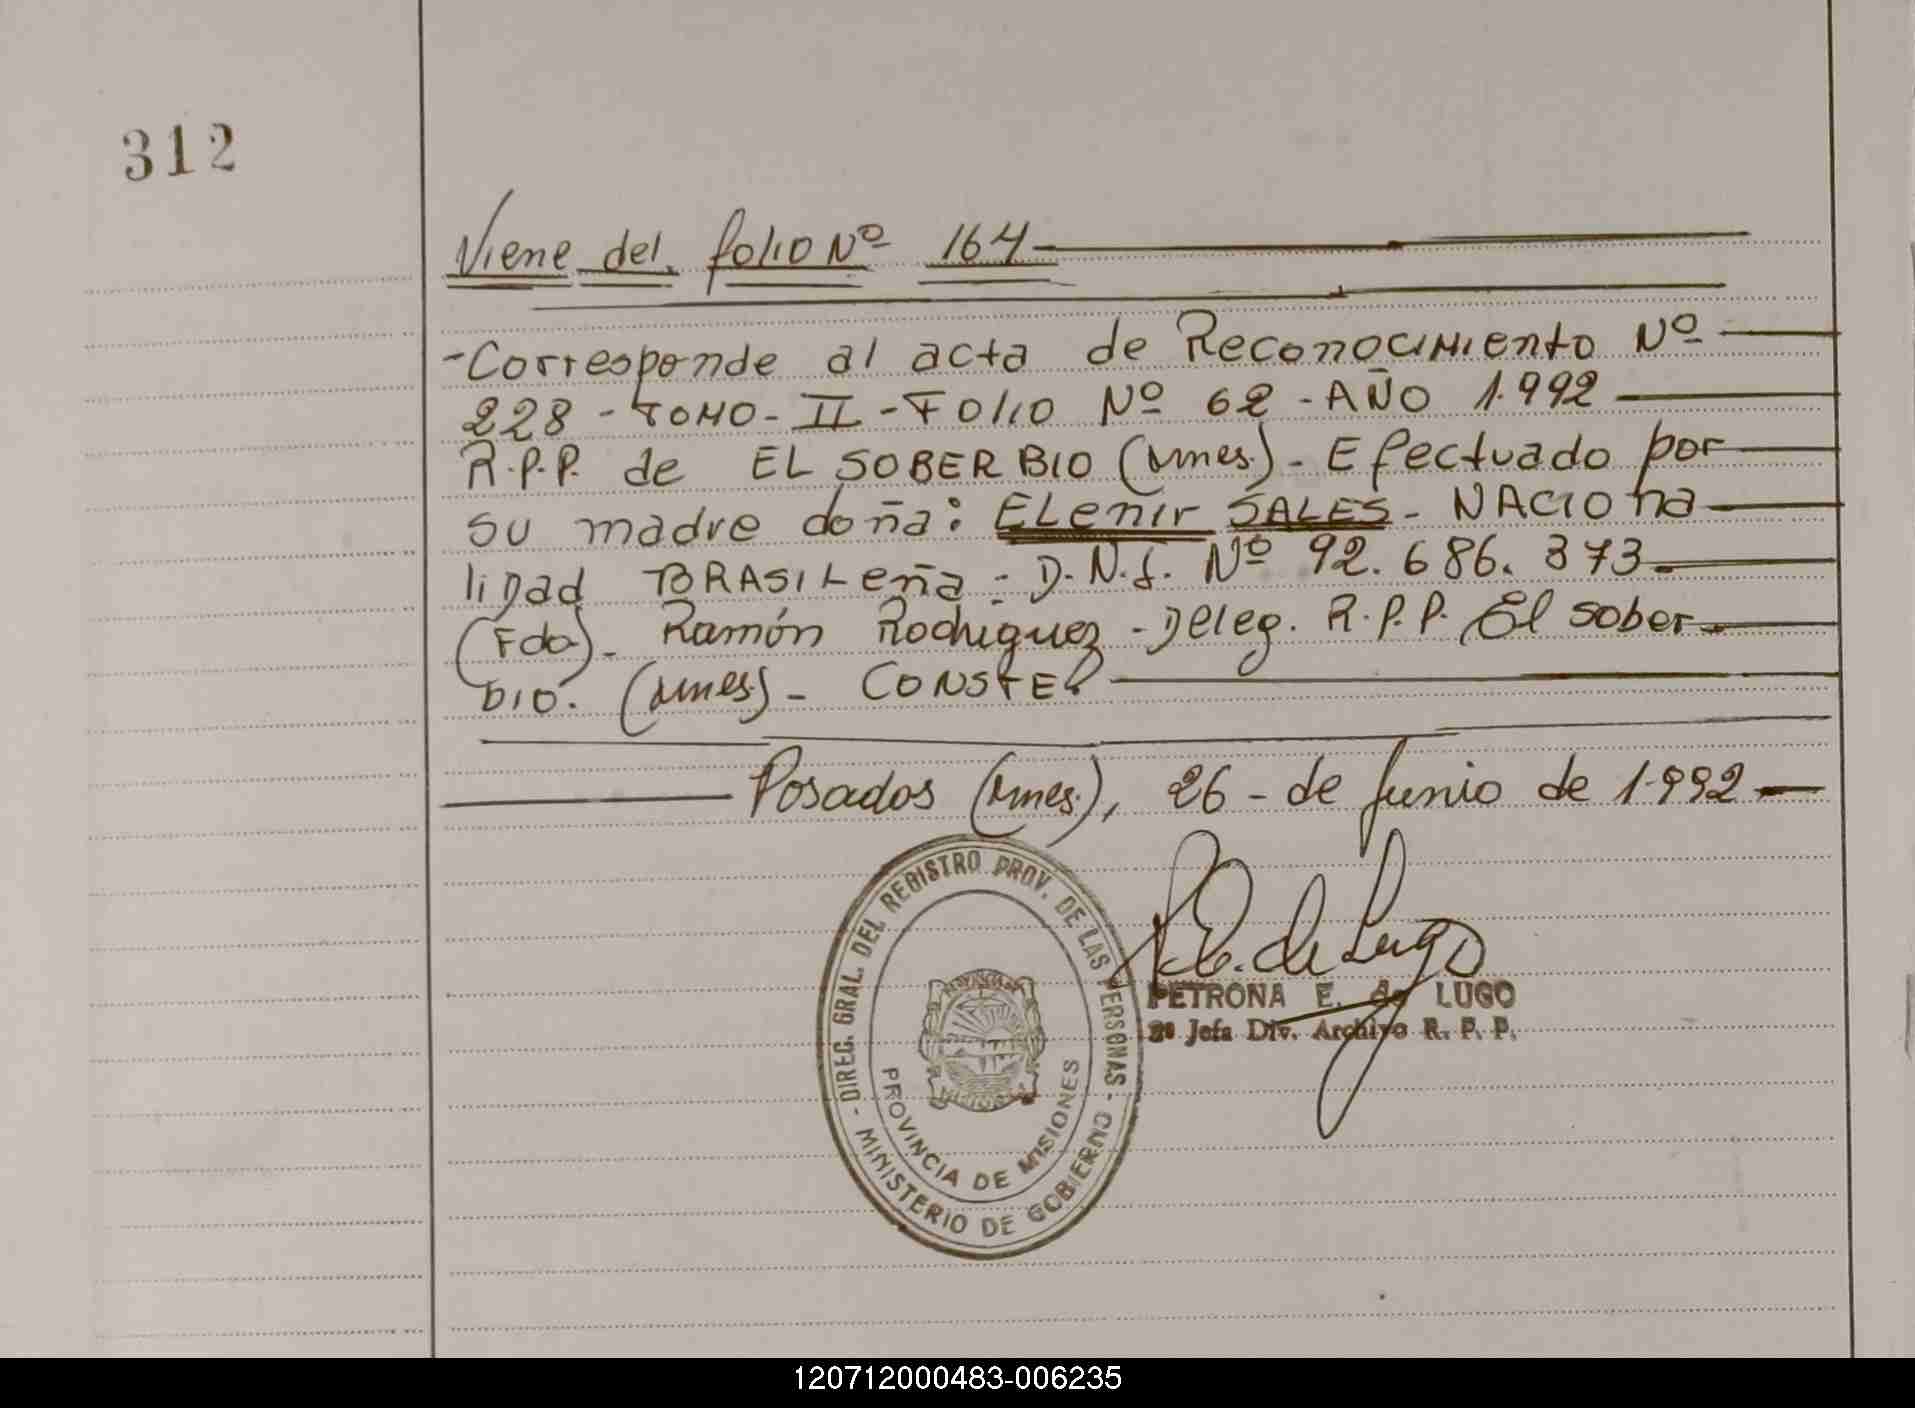 312
Viene del folio Nº 164
-Corresponde al acta de Reconocimiento Nº
228 - TOMO - II - Folio Nº 62 - AÑO 1.992
R.P.P. de EL SOBERBIO (Mnes.) - Efectuado por
su madre doña: ELenir SALES - NACIONA
lidad BRASILeña - D.N.I. Nº 92.686.373
(Fdo) - Ramón Rodriguez - Deleg. R.P.P. El sober
bio. (Mnes.) - CONSTE.
Posadas (Mnes.), 26 - de Junio de 1.992
P. E. de Lugo
PETRONA E. de LUGO
2º Jefa Div. Archivo R. P. P.
- DIREC. GRAL. DEL REGISTRO PROV. DE LAS PERSONAS -
MINISTERIO DE GOBIERNO
PROVINCIA DE MISIONES
120712000483-006235